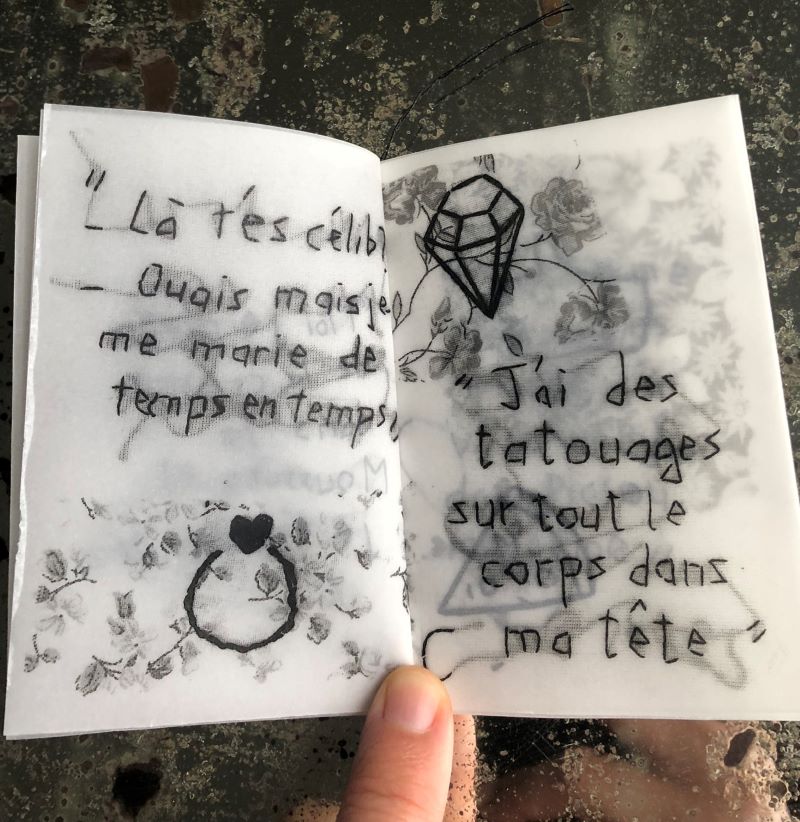 "
_ Là t'es célib?
_ Ouais mais je
me marie de
temps en temps
" J'ai des
tatouages
sur tout le
corps dans
ma tête "